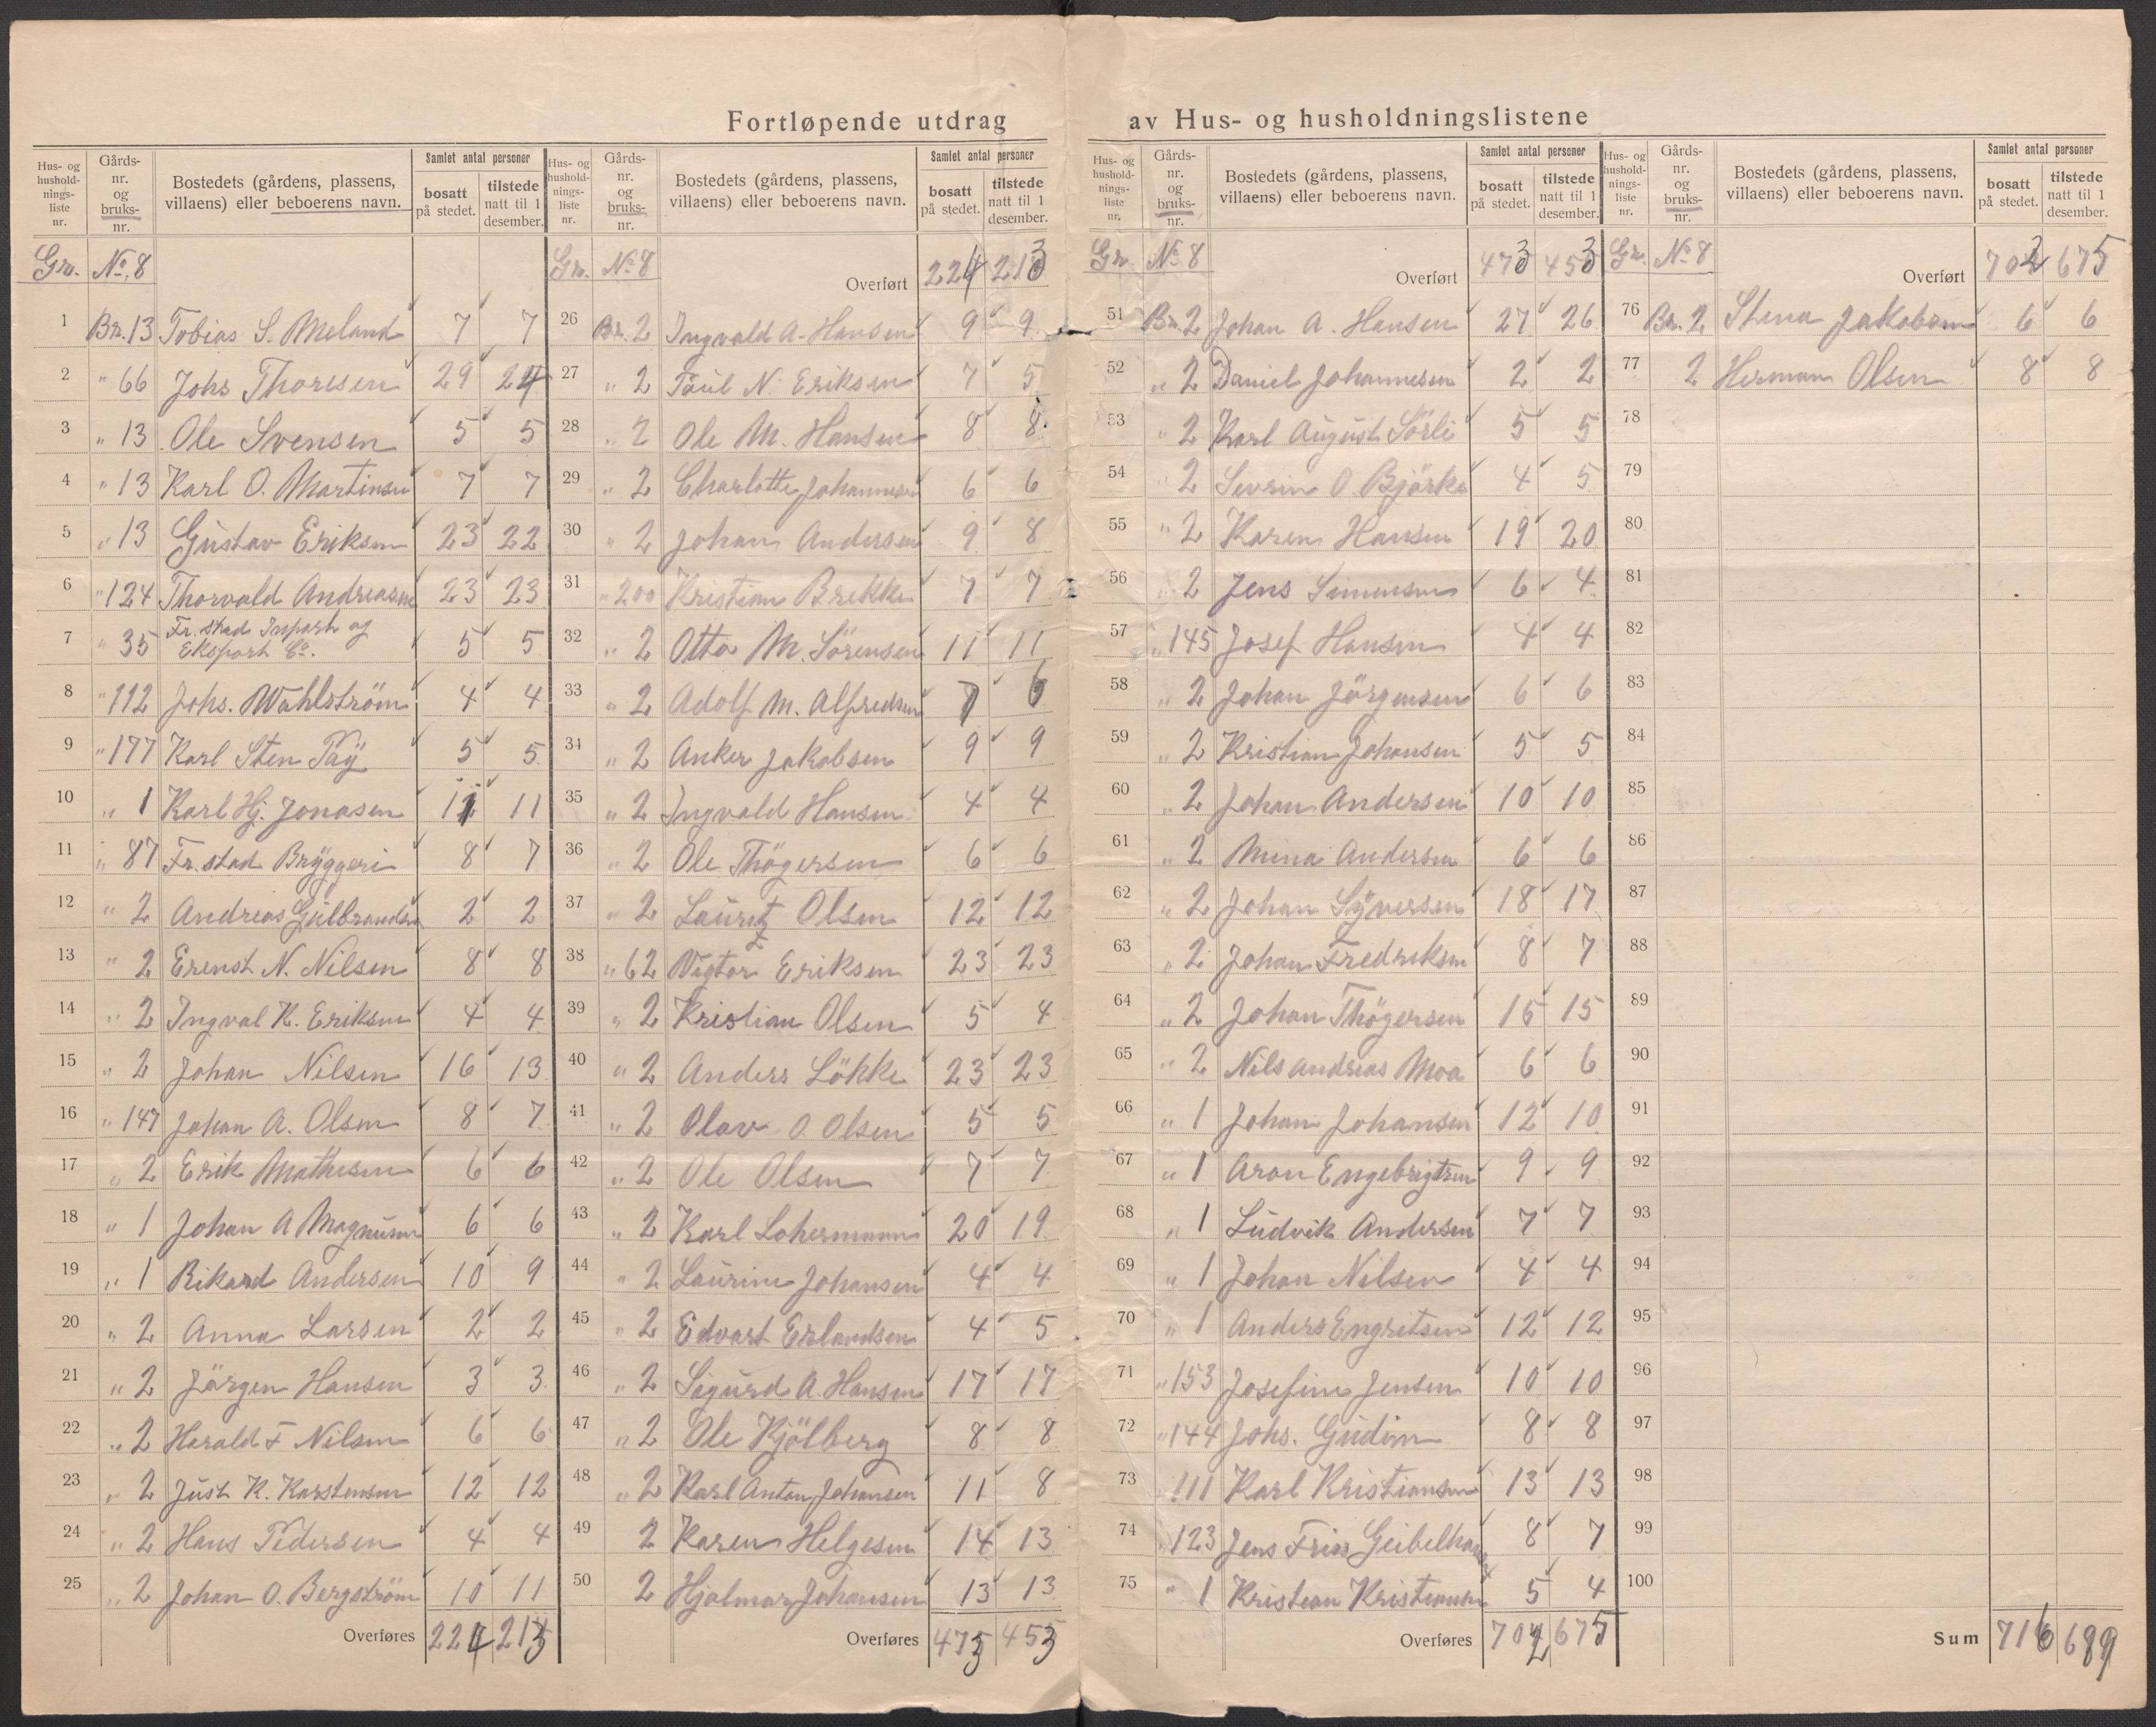 Fortløpende utdrag av Hus- og husholdningslistene
Hus- og husholdnings-liste nr. | Gårds-nr. og bruks-nr. | Bostedets (gårdens, plassens, villaens) eller beboerens navn. | Samlet antal personer bosatt på stedet. | tilstede natt til 1 desember.
Gr. No. 8
1 Br. 13 Tobias S. Meland 7 7
2 " 66 Johs Thoresen 29 24
3 " 13 Ole Svensen 5 5
4 " 13 Karl O. Martinsen 7 7
5 " 13 Gustav Eriksen 23 22
6 " 124 Thorvald Andreasen 23 23
7 " 35 Fr. stad Import og
Eksport Co. 5 5
8 " 112 Johs. Wahlström 4 4
9 " 177 Karl Sten Tay 5 5
10 " 1 Karl Hj. Jonasen 11 11
11 " 87 Fr. stad Bryggeri 8 7
12 " 2 Andreas Gulbrandsen 2 2
13 " 2 Erenst N. Nilsen 8 8
14 " 2 Ingval K. Eriksen 4 4
15 " 2 Johan Nilsen 16 13
16 " 147 Johan A. Olsen 8 7
17 " 2 Erik Mathesen 6 6
18 " 1 Johan A Magnusen 6 6
19 " 1 Rikard Andersen 10 9
20 " 2 Anna Larsen 2 2
21 " 2 Jörgen Hansen 3 3
22 " 2 Harald F Nilsen 6 6
23 " 2 Just K. Karstensen 12 12
24 " 2 Hans Pedersen 4 4
25 " 2 Johan O. Bergström 10 11
Overføres 224 213
Hus- og husholdnings-liste nr. | Gårds-nr. og bruks-nr. | Bostedets (gårdens, plassens, villaens) eller beboerens navn. | Samlet antal personer bosatt på stedet. | tilstede natt til 1 desember.
Gr. No 8 Overført 224 213
26 Br. 2 Ingvald A. Hansen 9 9
27 " 2 Paul N. Eriksen 7 5
28 " 2 Ole M. Hansen 8 8
29 " 2 Charlotte Johannesen 6 6
30 " 2 Johan Andersen 9 8
31 " 200 Kristian Brekke 7 7
32 " 2 Otto M. Sörensen 11 11
33 " 2 Adolf M. Alfredsen 7 6
34 " 2 Anker Jakobsen 9 9
35 " 2 Ingvald Hansen 4 4
36 " 2 Ole Thögersen 6 6
37 " 2 Lauritz Olsen 12 12
38 " 62 Vigtor Eriksen 23 23
39 " 2 Kristian Olsen 5 4
40 " 2 Anders Lökke 23 23
41 " 2 Olav O. Olsen 5 5
42 " 2 Ole Olsen 7 7
43 " 2 Karl Lohermann 20 19
44 " 2 Laurine Johansen 4 4
45 " 2 Edvart Erlandsen 4 5
46 " 2 Sigurd A. Hansen 17 17
47 " 2 Ole Kjölberg 8 8
48 " 2 Karl Anton Johansen 11 8
49 2 Karen Helgesen 14 13
50 2 Hjalmar Johansen 13 13
Overføres 473 453
Hus- og husholdnings-liste nr. | Gårds-nr. og bruks-nr. | Bostedets (gårdens, plassens, villaens) eller beboerens navn. | Samlet antal personer bosatt på stedet. | tilstede natt til 1 desember.
Gr. No 8 Overført 473 453
51 Br. 2 Johan A. Hansen 27 26
52 " 2 Daniel Johannesen 2 2
53 " 2 Karl August Sörli 5 5
54 2 Severin O. Björke 4 5
55 " 2 Karen Hansen 19 20
56 " 2 Jens Simensen 6 4
57 " 145 Josef Hansen 4 4
58 " 2 Johan Jörgensen 6 6
59 " 2 Kristian Johansen 5 5
60 " 2 Johan Andersen 10 10
61 " 2 Mina Andersen 6 6
62 " 2 Johan Syversen 18 17
63 " 2 Johan Fredriksen 8 7
64 " 2 Johan Thögersen 15 15
65 " 2 Nils Andreas Moa 6 6
66 " 1 Johan Johansen 12 10
67 " 1 Aron Engebrigtsen 9 9
68 " 1 Ludvik Andersen 7 7
69 " 1 Johan Nilsen 4 4
70 " 1 Anders Engretsen 12 12
71 " 153 Josefine Jensen 10 10
72 " 144 Johs. Gudim 8 8
73 " 111 Karl Kristiansen 13 13
74 " 123 Jens Friss Geibelhausen 8 7
75 " 1 Kristian Kristiansen 5 4
Overføres 702 675
Hus- og husholdnings-liste nr. | Gårds-nr. og bruks-nr. | Bostedets (gårdens, plassens, villaens) eller beboerens navn. | Samlet antal personer bosatt på stedet. | tilstede natt til 1 desember.
Gr. No 8 Overført 702 675
76 Br. 2 Stena Jakobsen 6 6
77 2 Herman Olsen 8 8
78
79
80
81
82
83
84
85
86
87
88
89
90
91
92
93
94
95
96
97
98
99
100
Sum 716 689